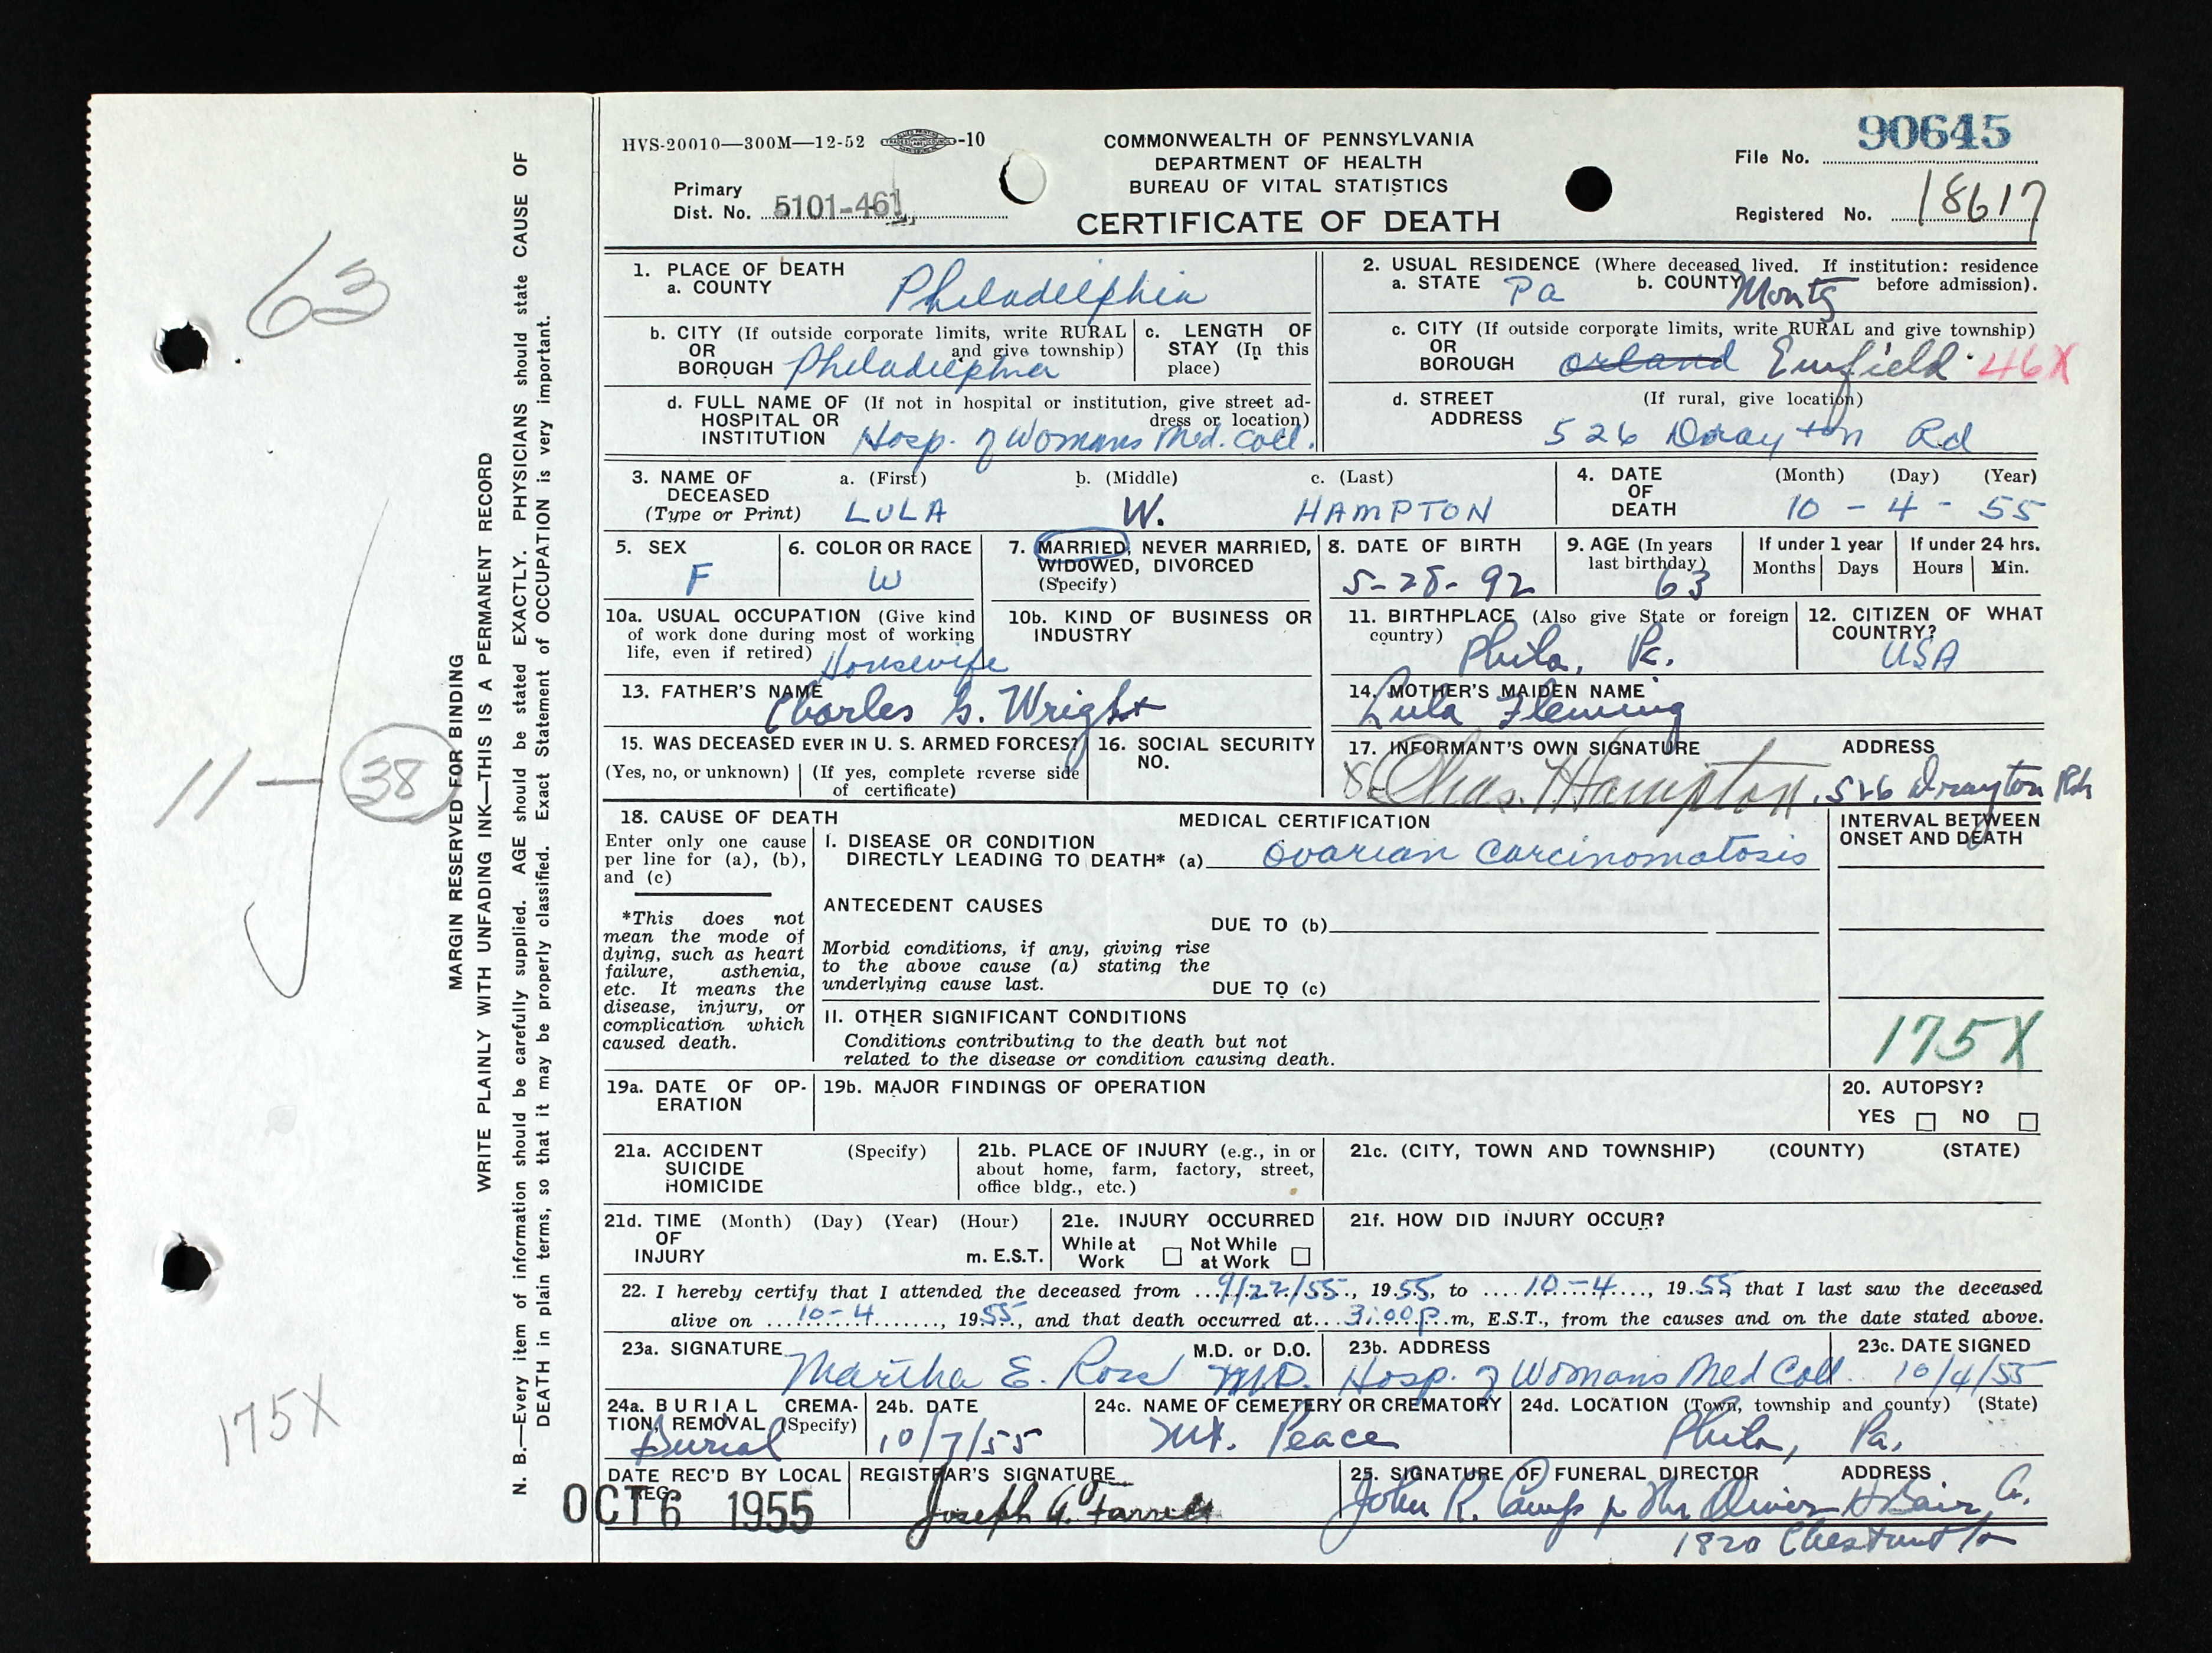 HVS-20010—300M—12-52 -10
COMMONWEALTH OF PENNSYLVANIA
DEPARTMENT OF HEALTH
BUREAU OF VITAL STATISTICS
CERTIFICATE OF DEATH
Primary
Dist. No. 5101-461
File No. 90645
Registered No. 18617
63
11 — 38
175X
MARGIN RESERVED FOR BINDING
WRITE PLAINLY WITH UNFADING INK—THIS IS A PERMANENT RECORD
N. B.—Every item of information should be carefully supplied. AGE should be stated EXACTLY. PHYSICIANS should state CAUSE OF
DEATH in plain terms, so that it may be properly classified. Exact Statement of OCCUPATION is very important.
1. PLACE OF DEATH
a. COUNTY Philadelphia
b. CITY (If outside corporate limits, write RURAL
OR and give township)
BOROUGH Philadelphia
c. LENGTH OF
STAY (In this
place)
d. FULL NAME OF (If not in hospital or institution, give street ad-
HOSPITAL OR dress or location)
INSTITUTION Hosp. of Womans Med. Coll.
2. USUAL RESIDENCE (Where deceased lived. If institution: residence
a. STATE Pa b. COUNTY Montg before admission).
c. CITY (If outside corporate limits, write RURAL and give township)
OR
BOROUGH Oreland Enfield 46X
d. STREET (If rural, give location)
ADDRESS 526 Drayton Rd
3. NAME OF a. (First) b. (Middle) c. (Last)
DECEASED
(Type or Print) LULA W. HAMPTON
4. DATE (Month) (Day) (Year)
OF
DEATH 10 - 4 - 55
5. SEX
F
6. COLOR OR RACE
W
7. MARRIED, NEVER MARRIED,
WIDOWED, DIVORCED
(Specify)
8. DATE OF BIRTH
5-28-92
9. AGE (In years
last birthday)
63
If under 1 year
Months Days
If under 24 hrs.
Hours Min.
10a. USUAL OCCUPATION (Give kind
of work done during most of working
life, even if retired) Housewife
10b. KIND OF BUSINESS OR
INDUSTRY
11. BIRTHPLACE (Also give State or foreign
country) Phila, Pa.
12. CITIZEN OF WHAT
COUNTRY?
USA
13. FATHER'S NAME
Charles G. Wright
14. MOTHER'S MAIDEN NAME
Lula Fleming
15. WAS DECEASED EVER IN U. S. ARMED FORCES?
(Yes, no, or unknown) (If yes, complete reverse side
of certificate)
16. SOCIAL SECURITY
NO.
17. INFORMANT'S OWN SIGNATURE ADDRESS
Chas. Hampton, 526 Drayton Rd
18. CAUSE OF DEATH
Enter only one cause
per line for (a), (b),
and (c)
*This does not
mean the mode of
dying, such as heart
failure, asthenia,
etc. It means the
disease, injury, or
complication which
caused death.
MEDICAL CERTIFICATION
I. DISEASE OR CONDITION
DIRECTLY LEADING TO DEATH* (a) Ovarian Carcinomatosis
ANTECEDENT CAUSES
DUE TO (b)
Morbid conditions, if any, giving rise
to the above cause (a) stating the
underlying cause last.
DUE TO (c)
II. OTHER SIGNIFICANT CONDITIONS
Conditions contributing to the death but not
related to the disease or condition causing death.
INTERVAL BETWEEN
ONSET AND DEATH
175X
19a. DATE OF OP-
ERATION
19b. MAJOR FINDINGS OF OPERATION
20. AUTOPSY?
YES NO
21a. ACCIDENT (Specify)
SUICIDE
HOMICIDE
21b. PLACE OF INJURY (e.g., in or
about home, farm, factory, street,
office bldg., etc.)
21c. (CITY, TOWN AND TOWNSHIP) (COUNTY) (STATE)
21d. TIME (Month) (Day) (Year) (Hour)
OF
INJURY m. E.S.T.
21e. INJURY OCCURRED
While at Not While
Work at Work
21f. HOW DID INJURY OCCUR?
22. I hereby certify that I attended the deceased from 9/22/55, 1955, to 10-4, 1955 that I last saw the deceased
alive on 10-4, 1955, and that death occurred at 3:00 p.m, E.S.T., from the causes and on the date stated above.
23a. SIGNATURE M.D. or D.O.
Martha E. Ross M.D.
23b. ADDRESS
Hosp. of Womans Med Coll.
23c. DATE SIGNED
10/4/55
24a. BURIAL CREMA-
TION, REMOVAL (Specify)
Burial
24b. DATE
10/7/55
24c. NAME OF CEMETERY OR CREMATORY
Mt. Peace
24d. LOCATION (Town, township and county) (State)
Phila, Pa.
DATE REC'D BY LOCAL
REG.
OCT 6 1955
REGISTRAR'S SIGNATURE
Joseph A. Farrell
25. SIGNATURE OF FUNERAL DIRECTOR ADDRESS
John R. Camp p The Oliver H Bair Co.
1820 Chestnut St